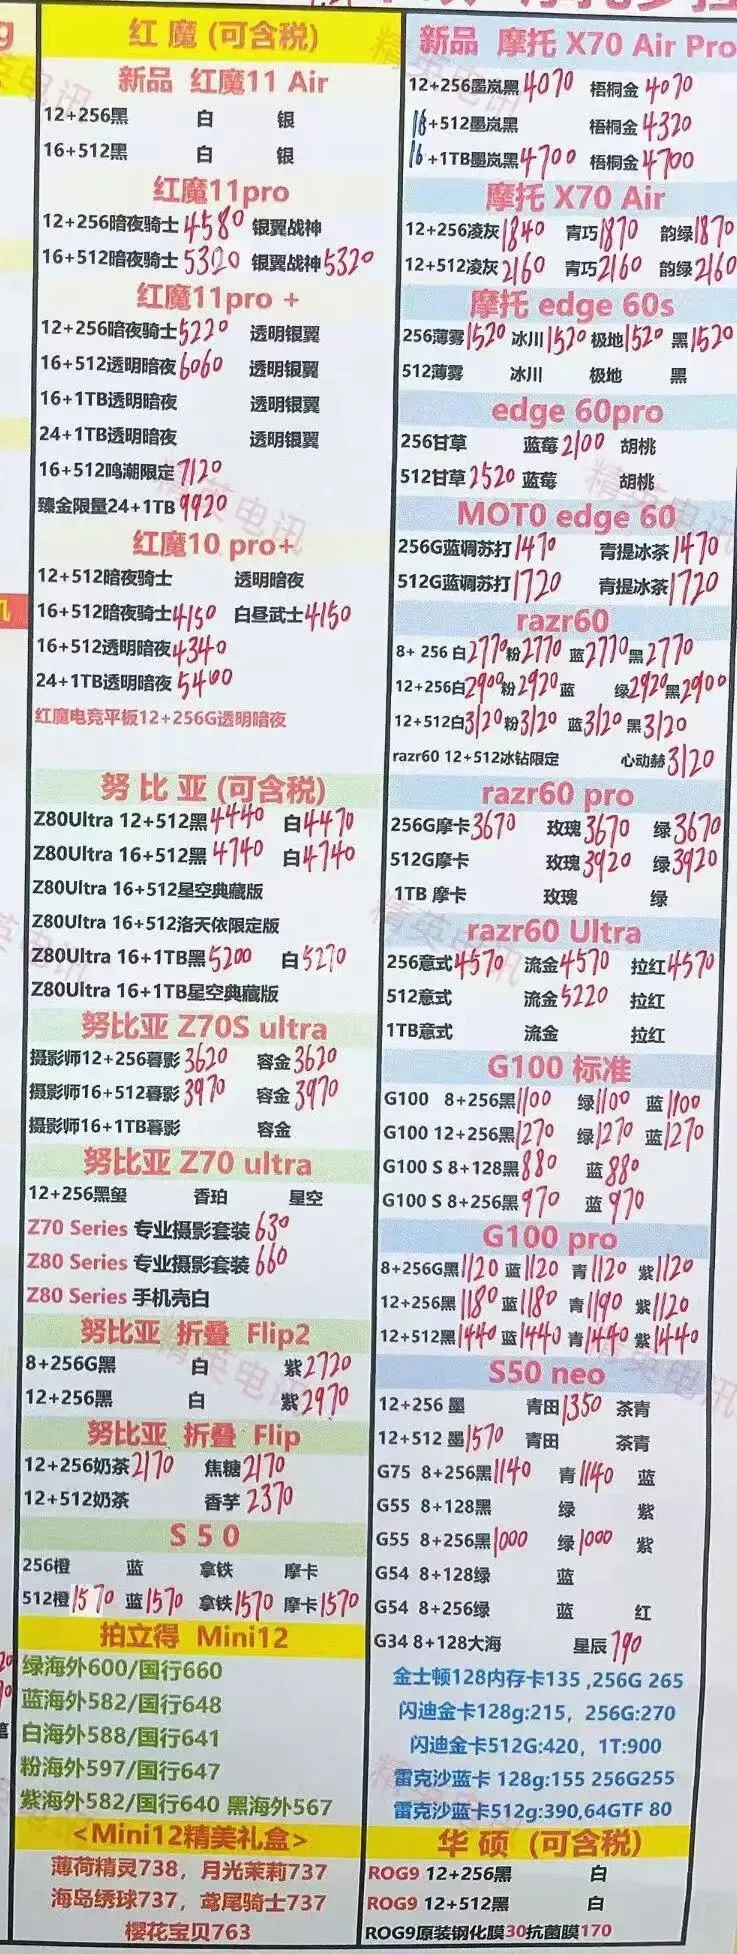 红 魔 (可含税)
新品 红魔11 Air
12+256黑 白 银
16+512黑 白 银
红魔11pro
12+256暗夜骑士4580 银翼战神
16+512暗夜骑士5320 银翼战神5320
红魔11pro +
12+256暗夜骑士5220 透明银翼
16+512透明暗夜6060 透明银翼
16+1TB透明暗夜 透明银翼
24+1TB透明暗夜 透明银翼
16+512鸣潮限定7120
臻金限量24+1TB9920
红魔10 pro+
12+512暗夜骑士 透明暗夜
16+512暗夜骑士4150 白昼武士4150
16+512透明暗夜4340
24+1TB透明暗夜5400
红魔电竞平板12+256G透明暗夜
努 比 亚 (可含税)
Z80Ultra 12+512黑4440 白4470
Z80Ultra 16+512黑4740 白4740
Z80Ultra 16+512星空典藏版
Z80Ultra 16+512洛天依限定版
Z80Ultra 16+1TB黑5200 白5270
Z80Ultra 16+1TB星空典藏版
努比亚 Z70S ultra
摄影师12+256暮影3620 容金3620
摄影师16+512暮影3970 容金3970
摄影师16+1TB暮影 容金
努比亚 Z70 ultra
12+256黑玺 香珀 星空
Z70 Series 专业摄影套装630
Z80 Series 专业摄影套装660
Z80 Series 手机壳白
努比亚 折叠 Flip2
8+256G黑 白 紫2720
12+256黑 白 紫2970
努比亚 折叠 Flip
12+256奶茶2170 焦糖2170
12+512奶茶 香芋2370
S 5 0
256橙 蓝 拿铁 摩卡
512橙1570 蓝1570 拿铁1570 摩卡1570
拍立得 Mini12
绿海外600/国行660
蓝海外582/国行648
白海外588/国行641
粉海外597/国行647
紫海外582/国行640 黑海外567
<Mini12精美礼盒>
薄荷精灵738，月光茉莉737
海岛绣球737，鸢尾骑士737
樱花宝贝763
新品 摩托 X70 Air Pro
12+256墨岚黑4070 梧桐金4070
16+512墨岚黑 梧桐金4320
16+1TB墨岚黑4700 梧桐金4700
摩托 X70 Air
12+256凌灰1840 青巧1870 韵绿1870
12+512凌灰2160 青巧2160 韵绿2160
摩托 edge 60s
256薄雾1520 冰川1520 极地1520 黑1520
512薄雾 冰川 极地 黑
edge 60pro
256甘草 蓝莓2100 胡桃
512甘草2520 蓝莓 胡桃
MOT0 edge 60
256G蓝调苏打1470 青提冰茶1470
512G蓝调苏打1720 青提冰茶1720
razr60
8+ 256 白2770 粉2770 蓝2770 黑2770
12+256白2900 粉2920 蓝 绿2920 黑2900
12+512白3120 粉3120 蓝3120 黑3120
razr60 12+512冰钻限定 心动赫3120
razr60 pro
256G摩卡3670 玫瑰3670 绿3670
512G摩卡 玫瑰3920 绿3920
1TB 摩卡 玫瑰 绿
razr60 Ultra
256意式4570 流金4570 拉红4570
512意式 流金5220 拉红
1TB意式 流金 拉红
G100 标准
G100 8+256黑1100 绿1100 蓝1100
G100 12+256黑1270 绿1270 蓝1270
G100 S 8+128黑880 蓝880
G100 S 8+256黑970 蓝970
G100 pro
8+256G黑1120 蓝1120 青1120 紫1120
12+256黑1180 蓝1180 青1190 紫1120
12+512黑1440 蓝1440 青1440 紫1440
S50 neo
12+256 墨 青田1350 茶青
12+512 墨1570 青田 茶青
G75 8+256黑1140 青1140 蓝
G55 8+128黑 绿 紫
G55 8+256黑1000 绿1000 紫
G54 8+128绿 蓝
G54 8+256绿 蓝 红
G34 8+128大海 星辰790
金士顿128内存卡135 ,256G 265
闪迪金卡128g:215，256G:270
闪迪金卡512G:420，1T:900
雷克沙蓝卡 128g:155 256G255
雷克沙蓝卡512g:390,64GTF 80
华 硕 (可含税)
ROG9 12+256黑 白
ROG9 12+512黑 白
ROG9原装钢化膜30抗菌膜170
精英电讯